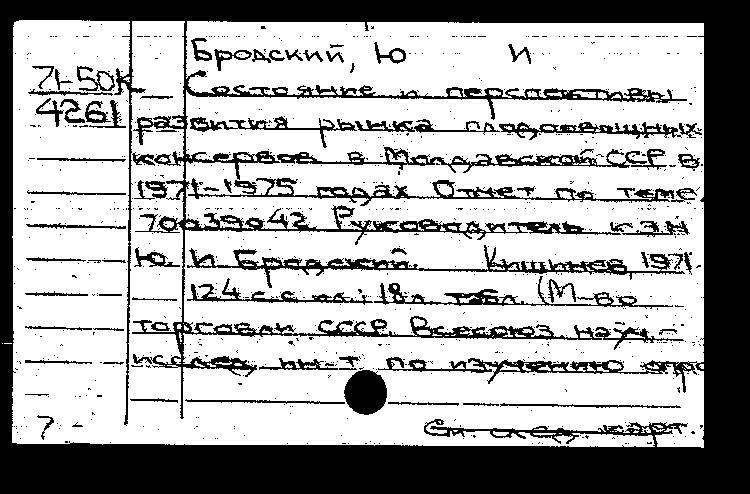 Бродский, Ю И
71-50К Состояние и перспективы
4261 развития рынка плодоовощных
консервов в Молдавской ССР в
1971-1975 годах Отчет по теме
70039042 Руководитель к э н
Ю. И Бродский. Кишинев, 1971
124 с. с ил.; 18 л. табл. (М-во
торговли СССР Всесоюз науч.-
исслед, ин-т по изучению спро
7 - См. след. карт.